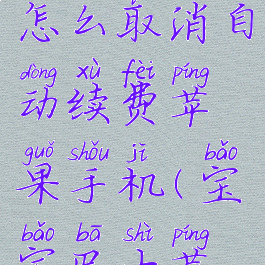 怎么取消自
dòng xù fèi píng
动续费苹
guǒ shǒu jī bǎo
果手机(宝
bǎo bā shì píng